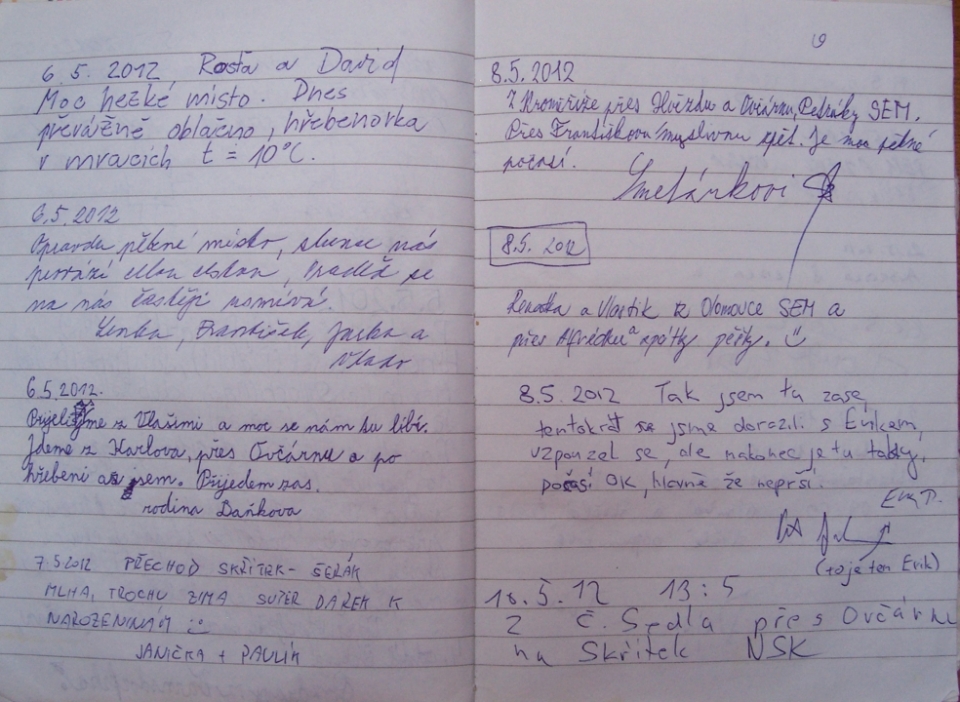 6.5.2012 Rosťa a David
Moc hezké místo. Dnes
převážěně oblačno, hřebenovka
v mracích t = 10°C.
6.5.2012
Opravdu pěkné místo, slunce nás
na nás častěji usmívá.
Lenka, František, Jarka a
Vlado
6.5.2012.
Přijeli jsme z Vlašimi a moc se nám tu líbí.
Jdeme z Karlova, přes Ovčárnu a po
hřebeni až sem. Přijedem zas.
rodina Daňkova
7.5.2012 PŘECHOD SKŘÍTEK - ŠERÁK
MLHA, TROCHU ZIMA SUPER DÁREK K
NAROZENINÁM
JANIČKA + PAVLÍK
19
8.5.2012
Z Kroměříže přes Hvězdu a Ovčárnu, Petráky SEM.
Přes Františkovu myslivnu zpět. Je moc pěkné
počasí.
Smetánkovi
8.5. 2012
Renatka a Vlastik z Olomouce SEM a
přes Alfrédku a zpátky pěšky.
8.5.2012 Tak jsem tu zase,
tentokrát jsme dorazili s Erikem,
vzpouzel se, ale nakonec je tu taky.
počasí OK, hlavně že neprší.
(to je ten Erik)
18.5.12 13:5
Z Č. Sedla přes Ovčárnu
na Skřítek NSK